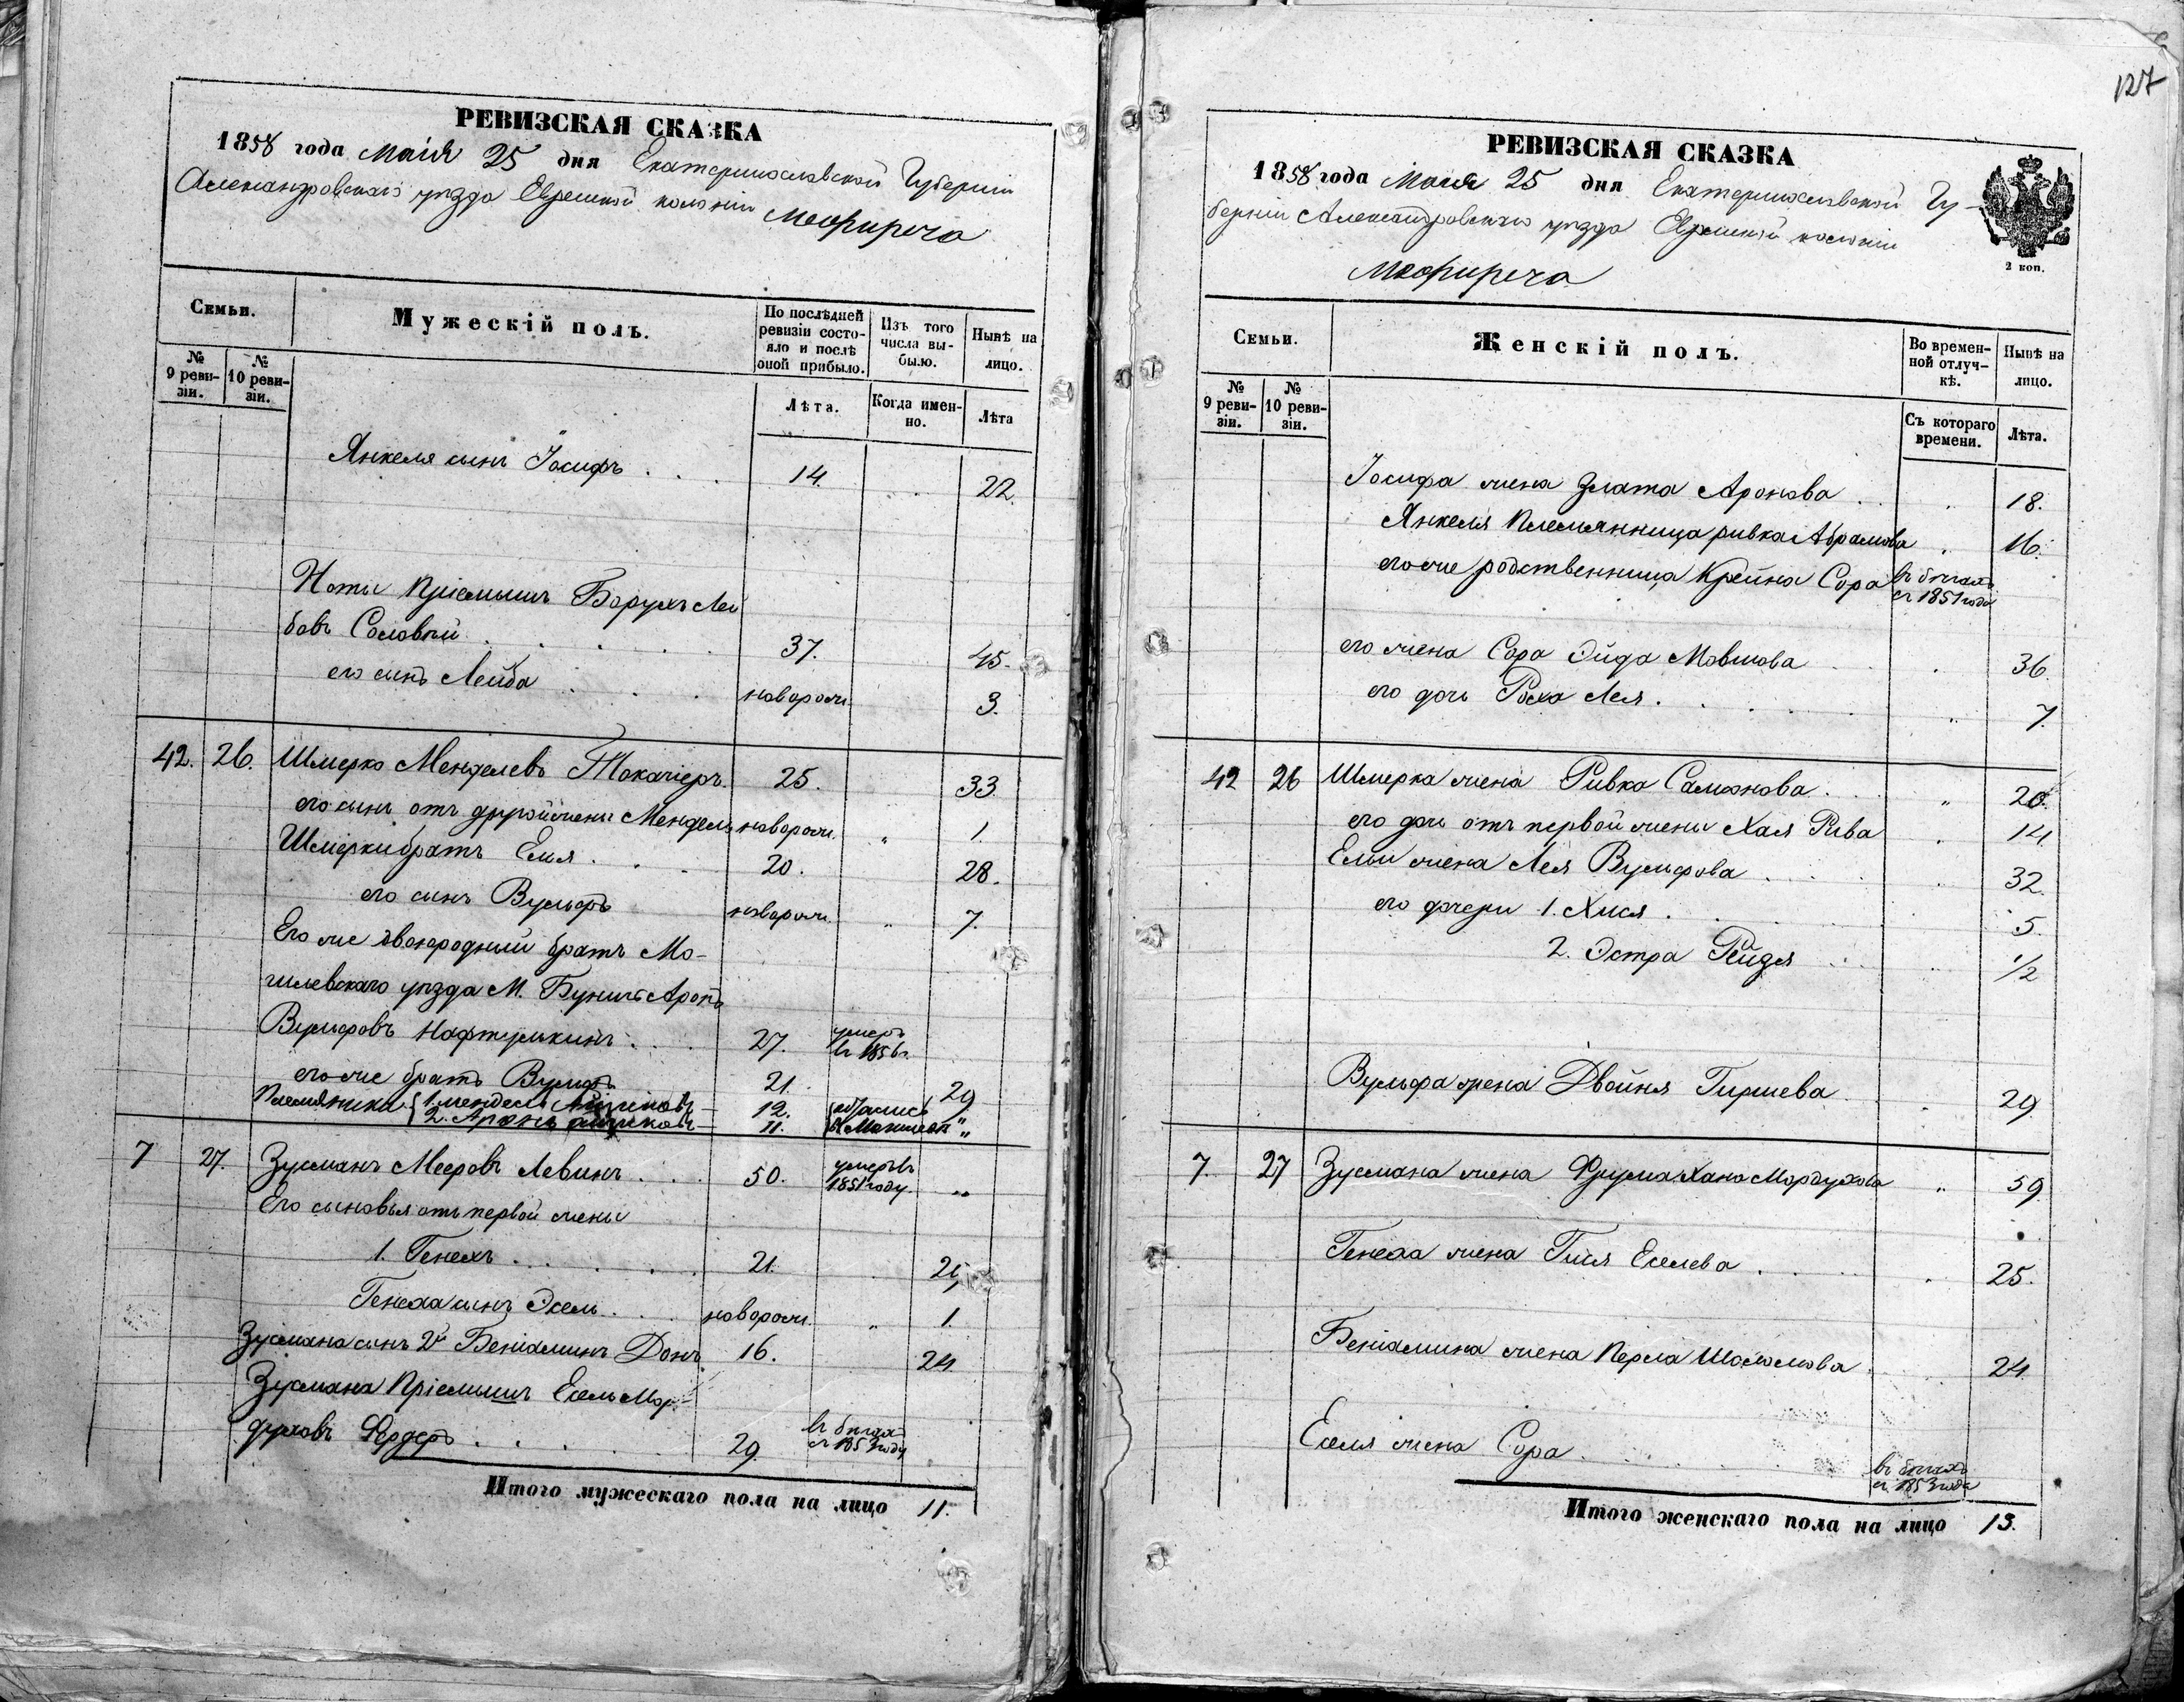 РЕВИЗСКАЯ СКАЗКА
1858 года Маія 25 дня Екатеринославской Губерніи
Александровскаго уѣзда Еврейской колоніи
Межиреча
Семьи.
Мужескій полъ.
По послѣдней ревизіи состояло и послѣ оной прибыло.
Изъ того числа выбыло.
Нынѣ на лицо.
№ 9 ревизіи.
№ 10 ревизіи.
Лѣта.
Когда именно.
Лѣта
Янкеля сынъ Іосифъ . . . 14. 22.
Ноты Пріемышъ Борухъ Лей
бовъ Соловѣй . . . 37. 45.
его сынъ Лейба . . . новорож. 3.
42. 26. Шмерко Менделевъ Токачіеръ. 25. 33.
его сынъ отъ другой жены Мендель новорож. " 1.
Шмерки братъ Еля . . . 20. 28.
его сынъ Вульфъ новорож. " 7.
Его же двоюродный братъ Мо-
гилевскаго уѣзда М. Буничъ Аронъ
Вульфовъ Нафтулькинъ . . . 27. умеръ въ 1856 г.
его же братъ Вульфъ 21. 29
Племяники { 1. Мендель — 12. "
2. Аронъ — 11. "
7 27. Зусманъ Мееровъ Левинъ . . . 50. умеръ въ 1851 году. "
Его сыновья отъ первой жены
1. Генехъ . . . 21.
Генеха сынъ Эсель . . . новорож. " 1.
Зусмана сынъ 2й Беніаминъ Донъ 16. 24
Зусмана Пріемышъ Есель Мор-
духовъ Фердеръ . . . 29. въ бѣгахъ съ 1853 году
Итого мужескаго пола на лицо 11.
127
РЕВИЗСКАЯ СКАЗКА
1858 года Маія 25 дня Екатеринославской Гу-
берніи Александровскаго уѣзда Еврейской колоніи
Межиреча
2 коп.
Семьи.
Женскій полъ.
Во временной отлучкѣ.
Нынѣ на лицо.
№ 9 ревизіи.
№ 10 ревизіи.
Съ котораго времени.
Лѣта.
Іосифа жена Злата Аронова . . 18.
Янкеля Племянница Ривка Абрамова " 16.
его же родственница Крейна Сора въ бѣгахъ съ 1851 года
его жена Сора Эйда Мовшова 36.
его дочь Роха Лея . . . " 7.
42 26 Шмерка жена Ривка Самонова . . . "
его дочь отъ первой жены Хая Рива . 14
Ельи жена Лея Вульфова . . . 32.
его дочери 1. Хися . . . 5.
2. Эстра Рейдя . . . 1/2
Вульфа жена Двойня Гиршева . 29
7. 27 Зусмана жена Фрума Хана Мордухова " 59
Генеха жена Гися Еселева . . . 25.
Беніамина жена Перла Шоломова . . . 24
Еселя жена Сора . . . въ бѣгахъ съ 1853 года
Итого женскаго пола на лицо 13.